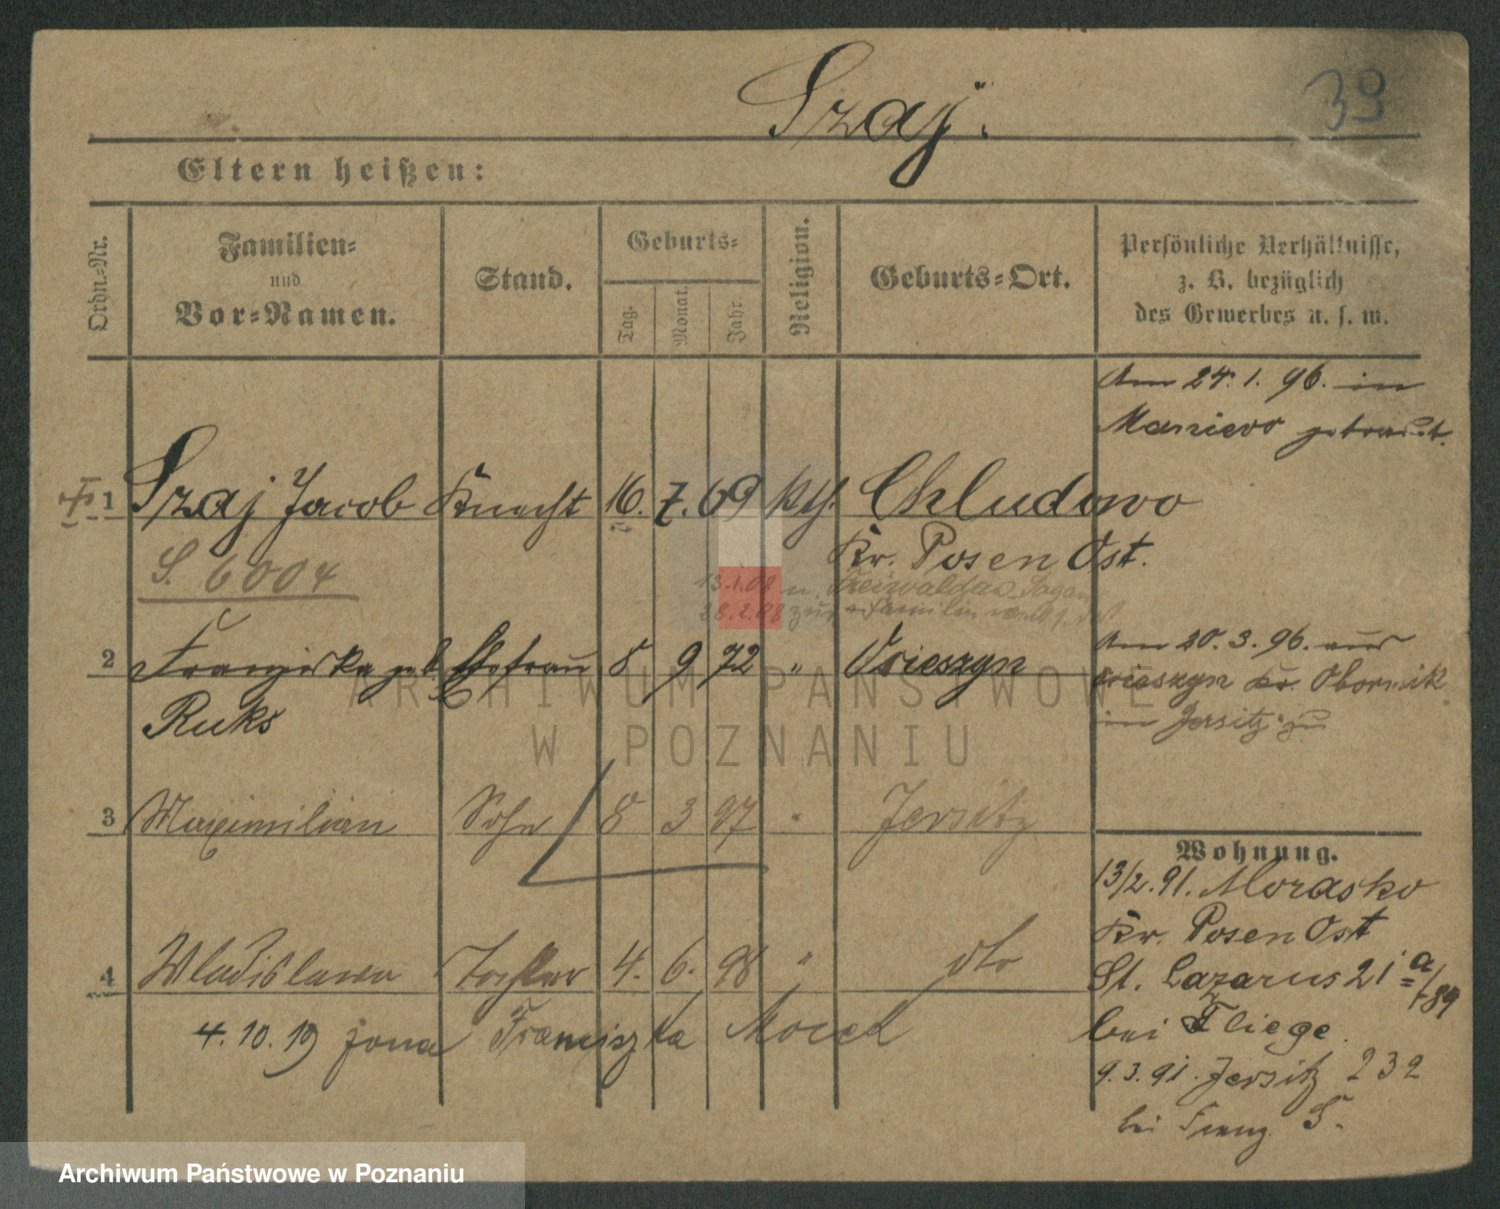 Szaj.
39
Eltern heißen:
Ordn.-Nr.
Familien-
und
Vor-Namen.
Stand.
Geburts-
Tag.
Monat.
Jahr
Religion.
Geburts-Ort.
Persönliche Verhältnisse,
z. B. bezüglich
des Gewerbes u. s. w.
Am 24.1.96. in
Maniewo getraut.
1 Szaj Jacob Knecht 16. 7. 69 kth. Chludowo
Kr. Posen Ost.
S. 6004
13.1.08 n. Freiwaldau Sagan
28.2.08 zur Familie
2 Franziska geb. Ehefrau 8 9 72 " Ocieszyn
Ruks
Am 20.3.96. aus
Ocieszyn Kr. Obornik
in Jersitz zu
3 Maximilian Sohn 8 3 97 " Jersitz
4 Wladislawa Tochter 4. 6. 98 " dto
4.10.19 żona Franciszka
Wohnung.
13/2.91. Morasko
Kr. Posen Ost
St. Lazarus 21 a/89
bei Fliege
9.3.91. Jersitz 232
bei Franz S.
ARCHIWUM PAŃSTWOWE
W POZNANIU
Archiwum Państwowe w Poznaniu